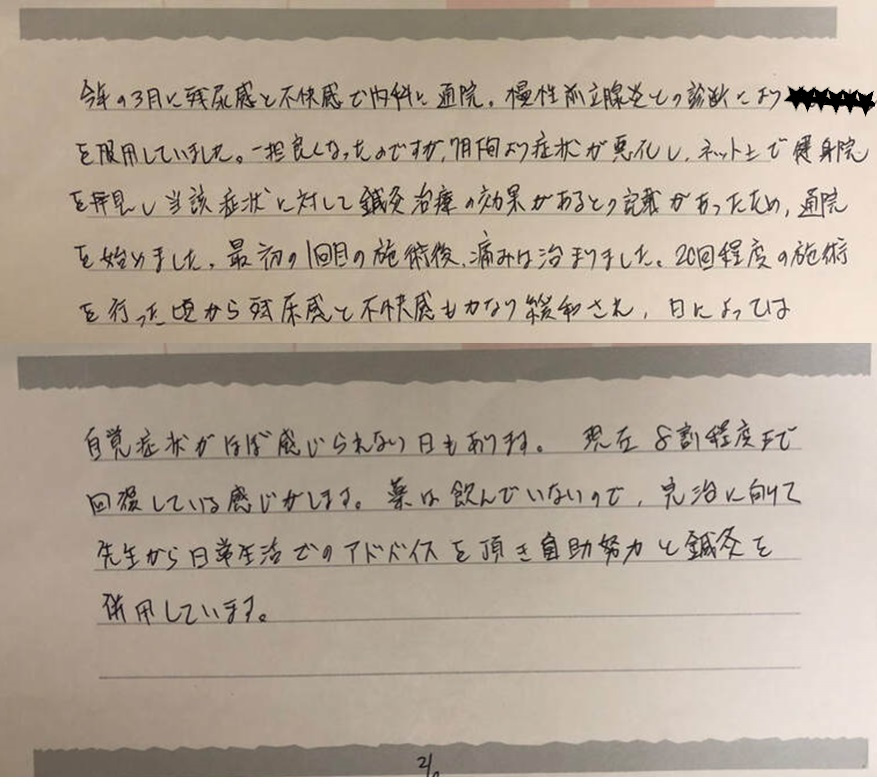 今年の3月に残尿感と不快感で内科に通院。慢性前立腺炎との診断により
を服用していました。一担良くなったのですが、7月頃より症状が悪化し、ネット上で健身院
を拝見し当該症状に対して鍼灸治療の効果があるとの記載があったため、通院
を始めました。最初の1回目の施術後、痛みは治まりました。20回程度の施術
を行った頃から残尿感と不快感もかなり緩和され、日によっては
自覚症状がほぼ感じられない日もあります。 現在 8割程度まで
回復している感じがします。薬は飲んでいないので、完治に向けて
先生から日常生活でのアドバイスを頂き自助努力と鍼灸を
併用しています。